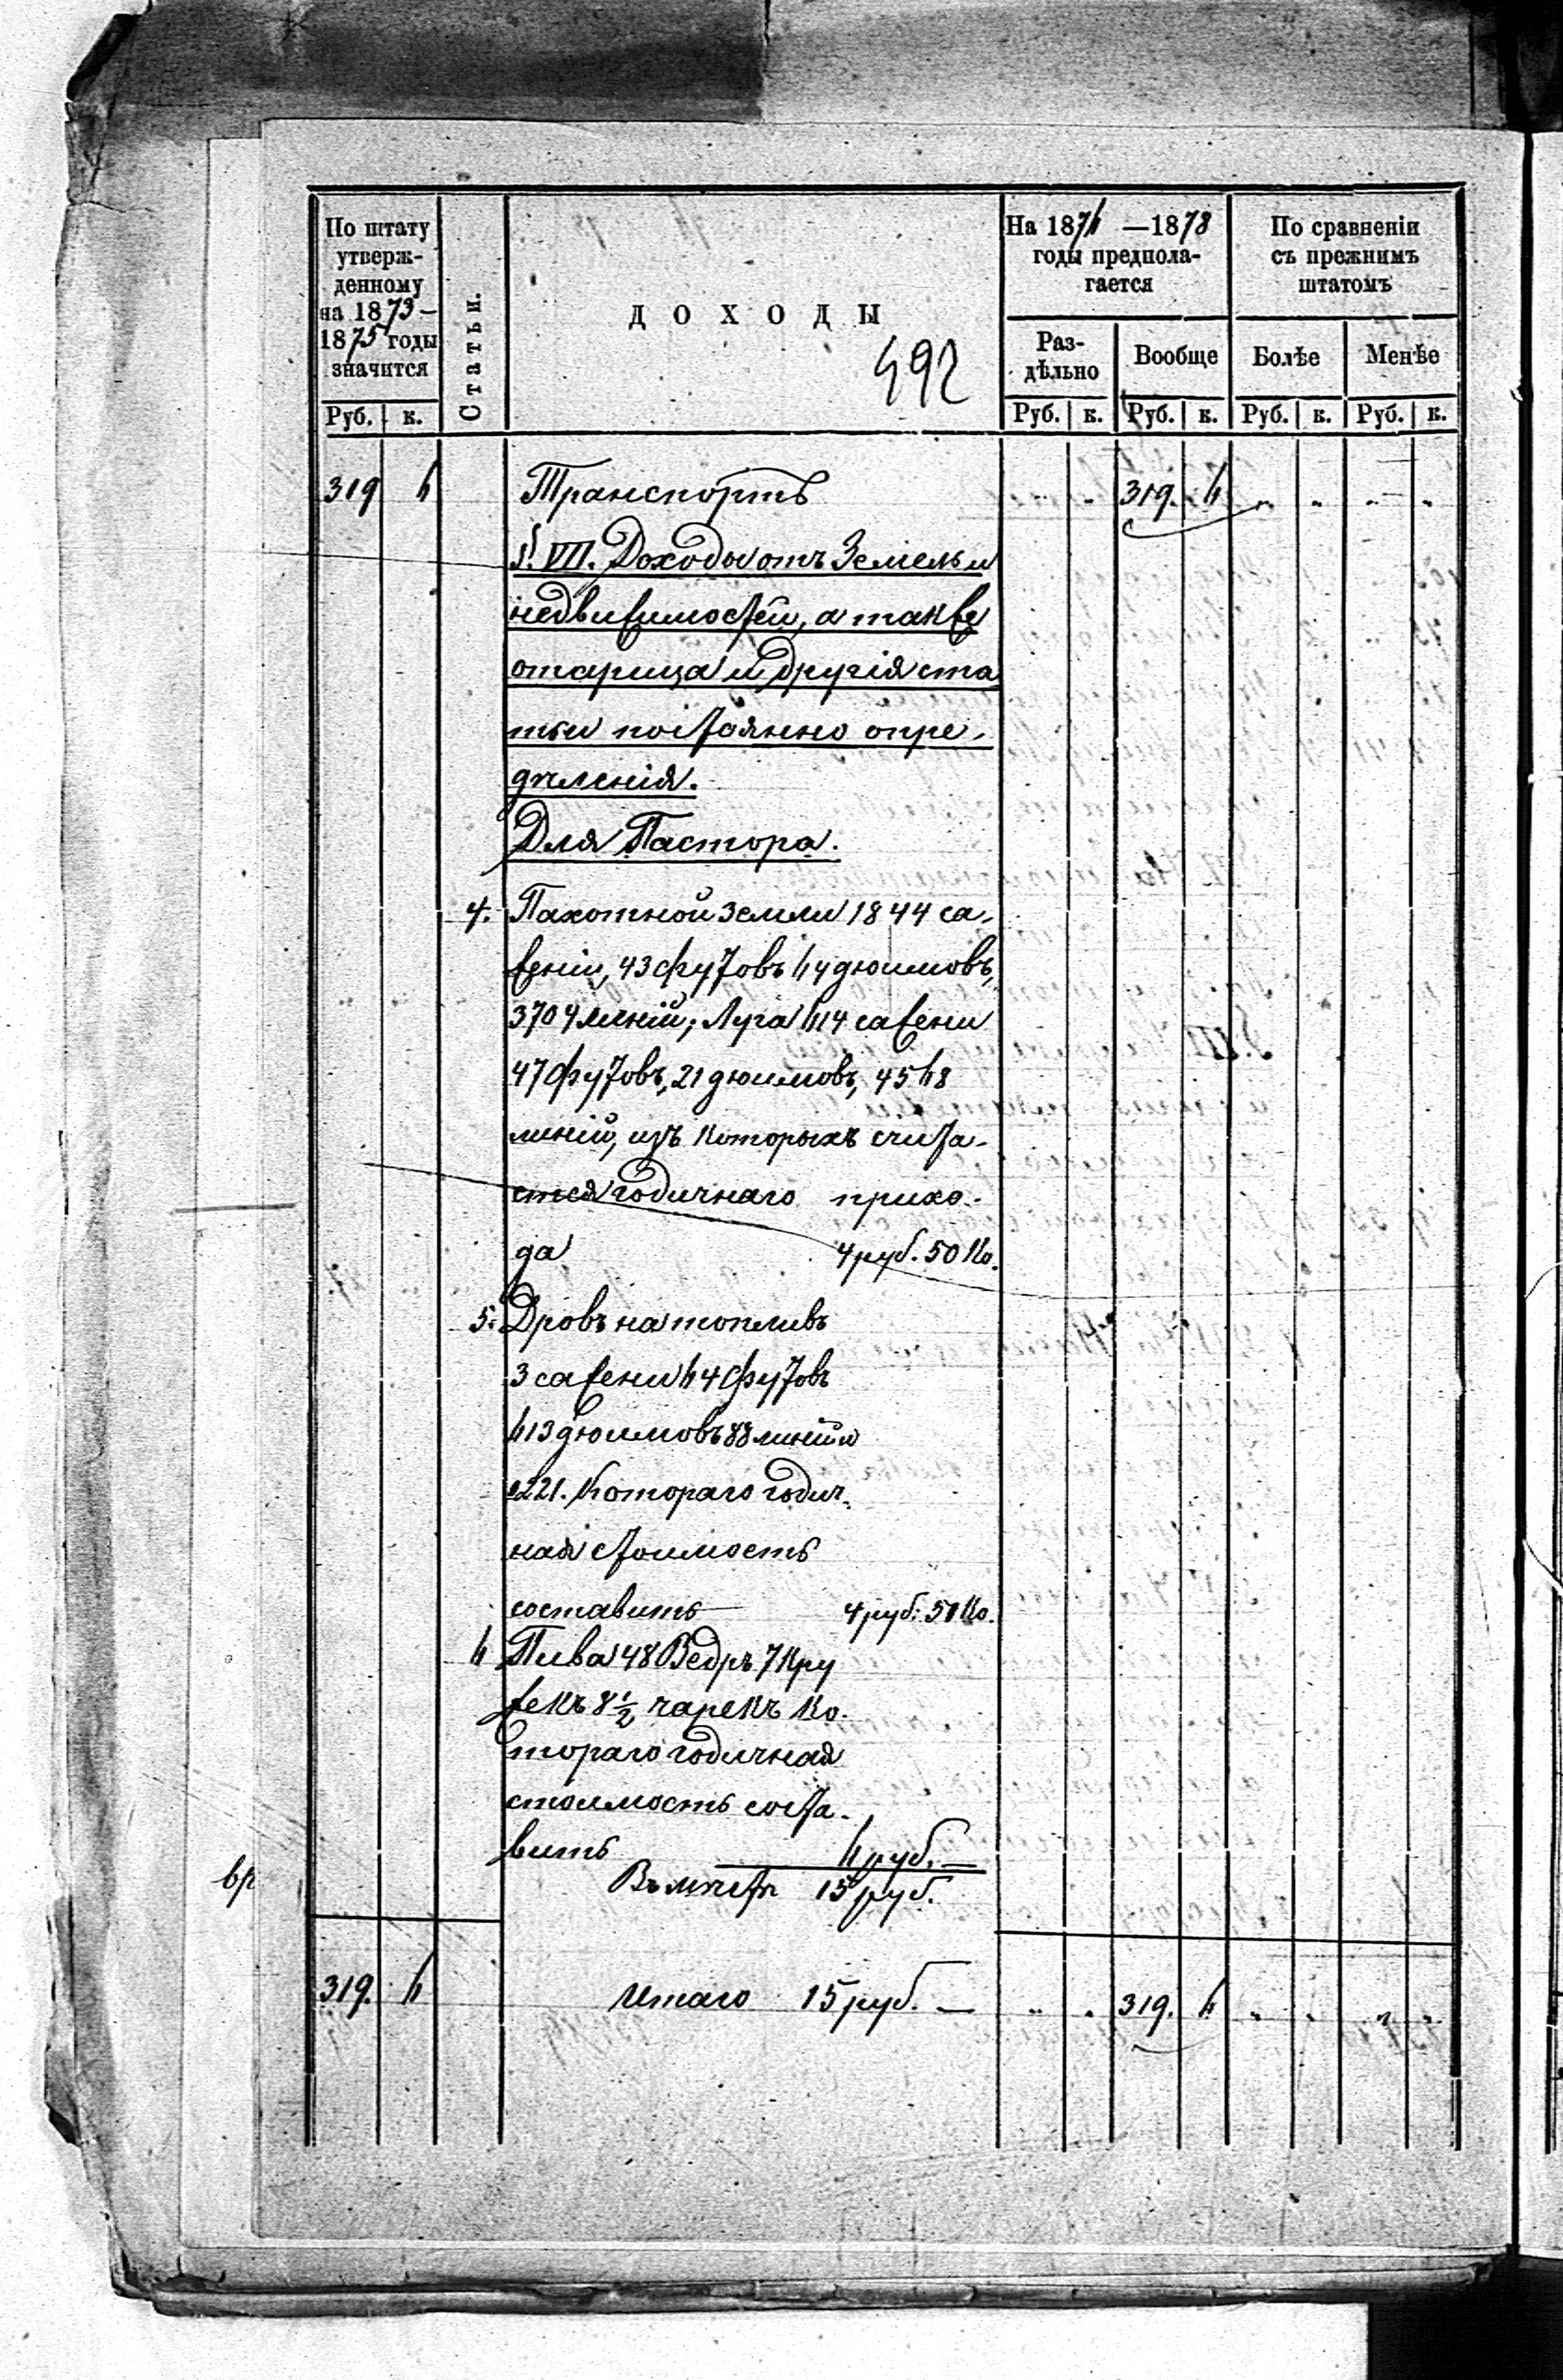 По штату
утверж-
денному
на 1873 –
1875 годы
значится
Руб. к.
Статьи.
ДОХОДЫ
492
На 1876 —1878
годы предпола-
гается
Раз-
дѣльно
Руб. к.
Вообще
Руб. к.
По сравненіи
съ прежнимъ
штатомъ
Болѣе
Руб. к.
Менѣе
Руб. к.
319 6 Транспортъ „ „ 319. 6 „ „ „ „
§. VII. Доходы отъ Земель и
недвижимостей, а также
отарица и другія ста
тьи постоянно опре-
дѣленія.
Для Пастора.
4. Пахотной земли 1844 са-
женіи, 43 футовъ 64 дюимовъ,
3704 линій; Луга 614 сажени
47 футовъ, 21 дюимовъ, 4568
линій, изъ которыхъ счита-
ется годичнаго прихо-
да 4 руб. 50 ко.
5. Дровъ на топливъ
3 сажени 64 футовъ
613 дюимовъ 88 линій и
1221. Котораго годич-
ная стоимость
составитъ 4 руб. 50 ко.
6 Пива 48 Ведръ 7 Кру
жекъ 8 1/2 чарекъ ко-
тораго годичная
стоимость соста-
витъ 6 руб. —
Въмѣстѣ 15 руб.
вр
319. 6 Итаго 15 руб. — „ „ 319. 6 „ „ „ „